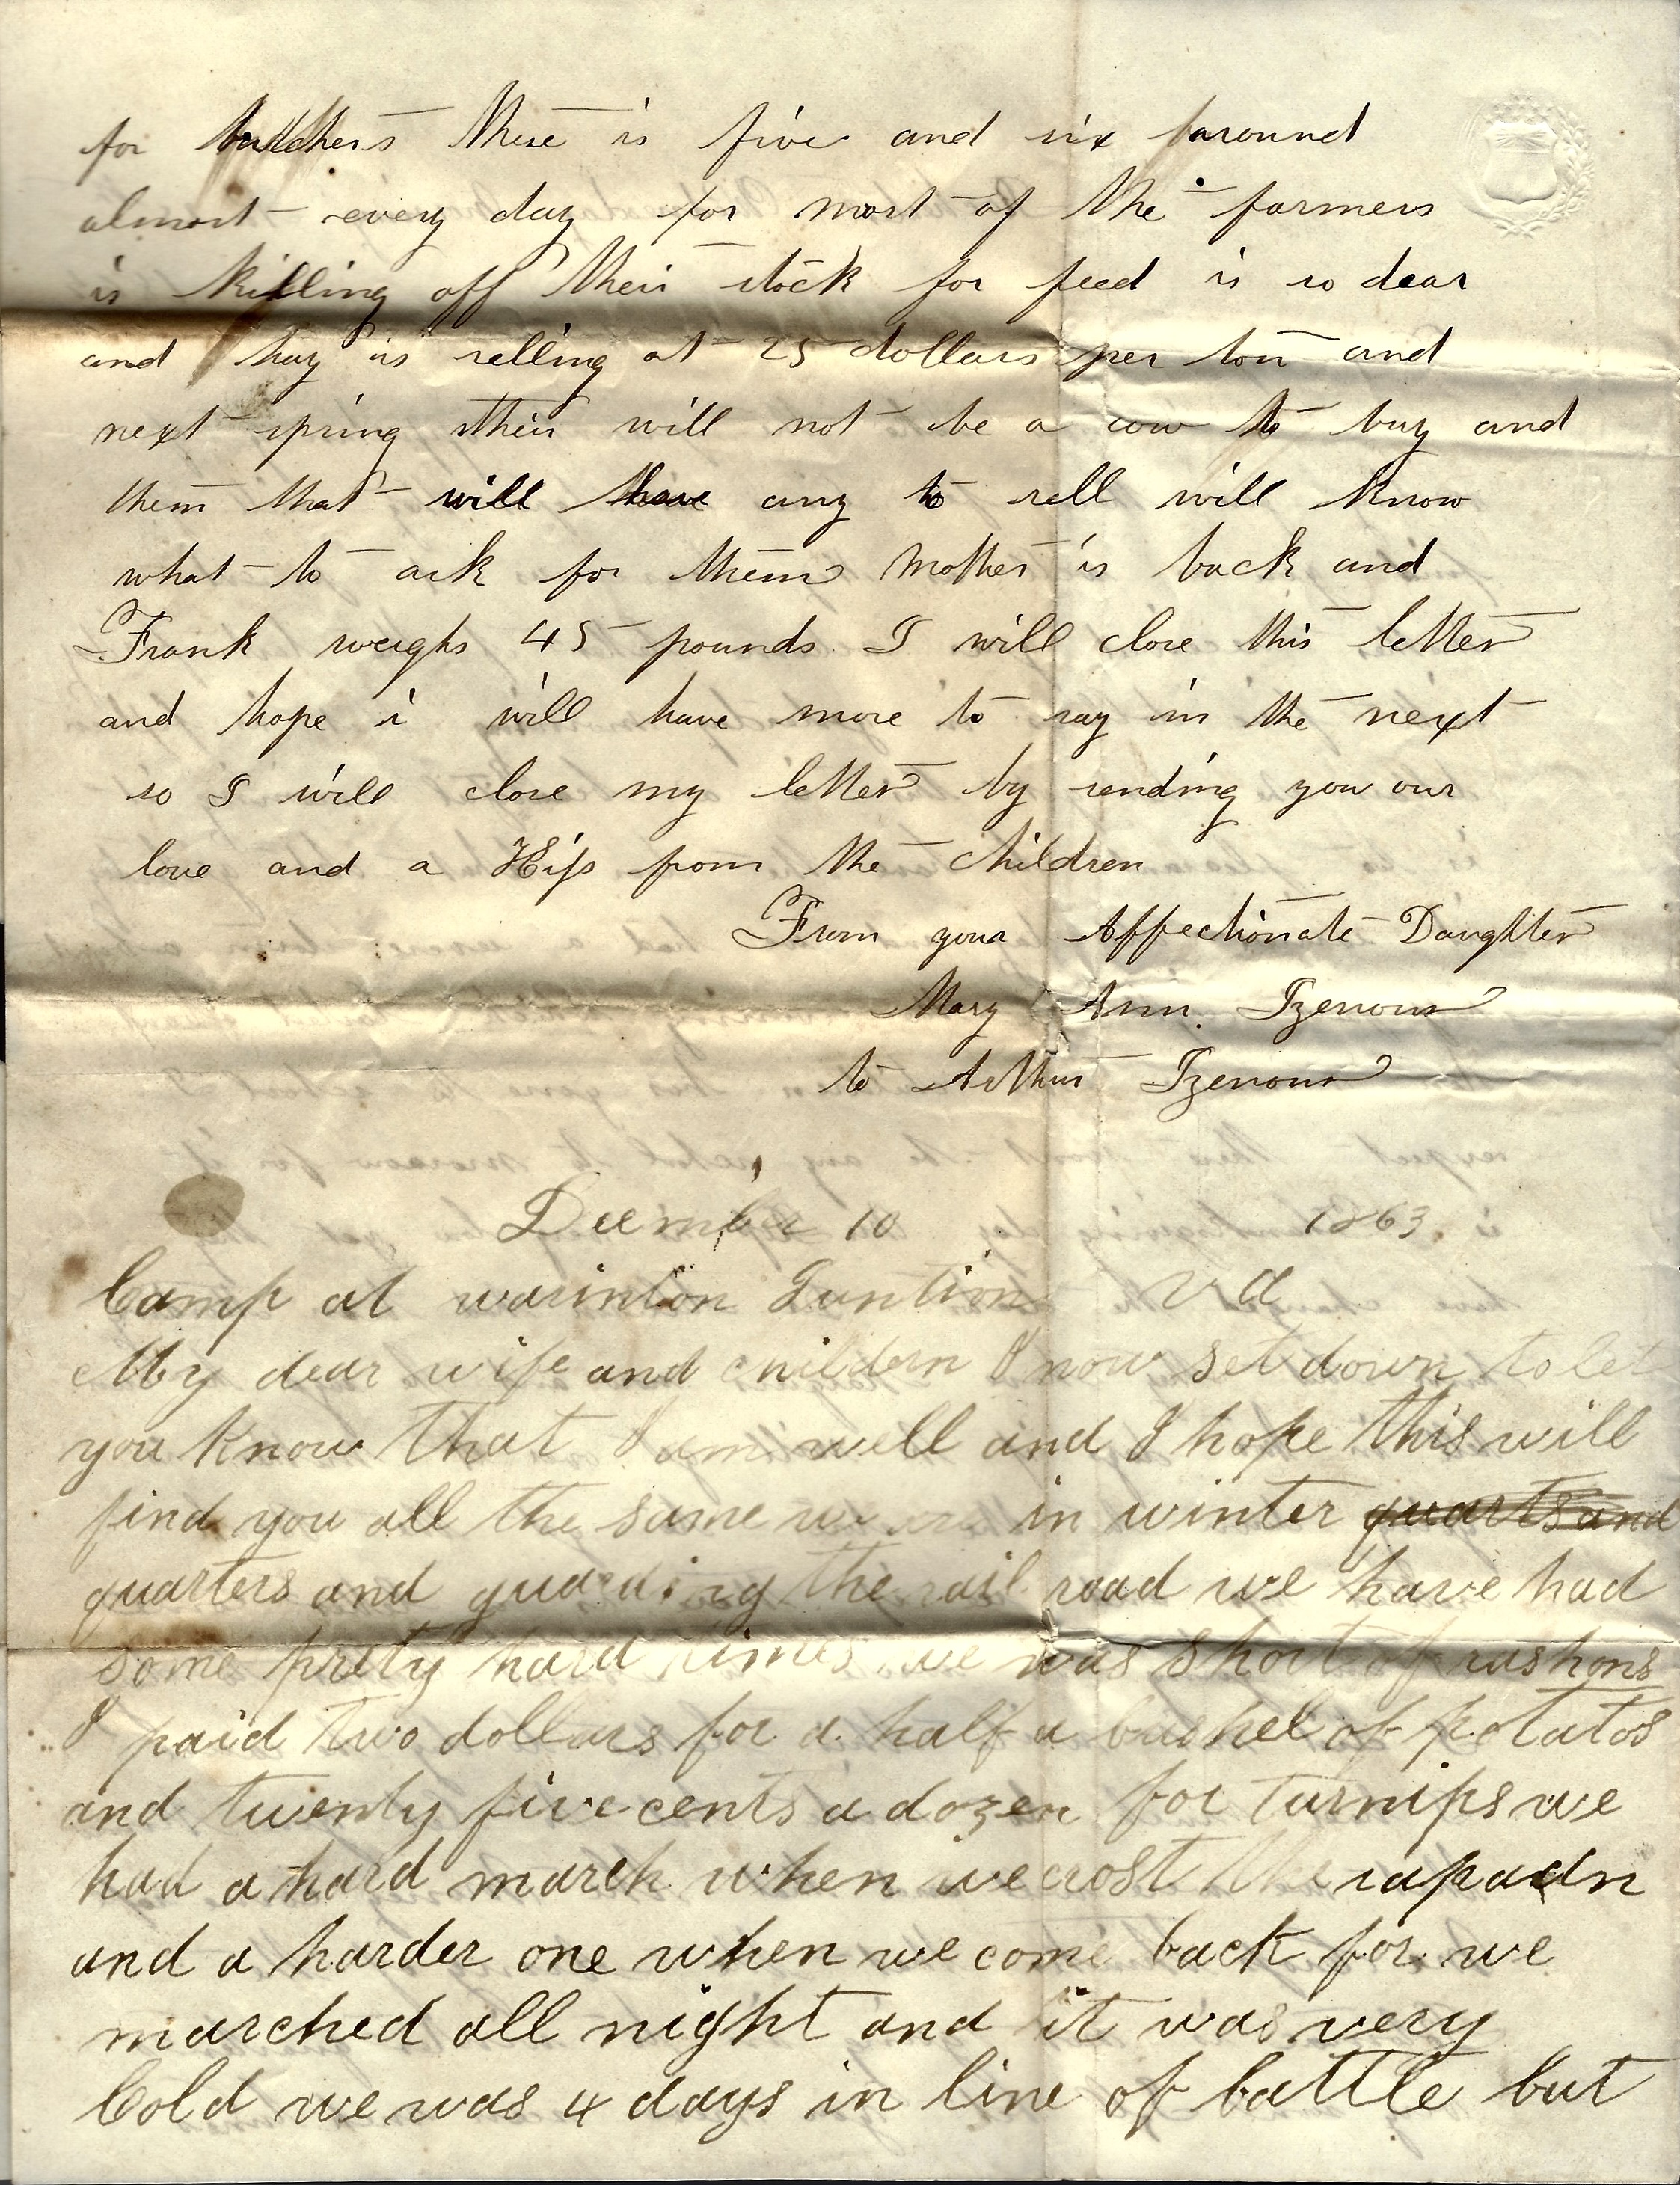 for butchers there is five and six around
almost every day for most of the farmers
is killing off their stock for feed is so dear
and hay is selling at 25 dollars per ton and
next spring their will not be a cow to buy and
them that will have any to sell will know
what to ask for them Mother is back and
Frank weighs 45 pounds. I will close this letter
and hope i will have more to say in the next
so I will close my letter by sending you our
love and a Kiss from the children
From your Affectionate Daughter
Mary Ann. Izenour
to Arthur Izenour
December 10 1863
Camp at warinton Juntion va
My dear wife and childern I now set down to let
you know that I am well and I hope this will
find you all the same we are in winter quarts and
quarters and guarding the rail road we have had
some prety hard times we was short of rashons
I paid two dollars for a half a bushel of potatos
and twenty five cents a dozen for turnips we
had a hard march when we crost the rapadn
and a harder one when we come back for we
marched all night and it was very
Cold we was 4 days in line of battle but